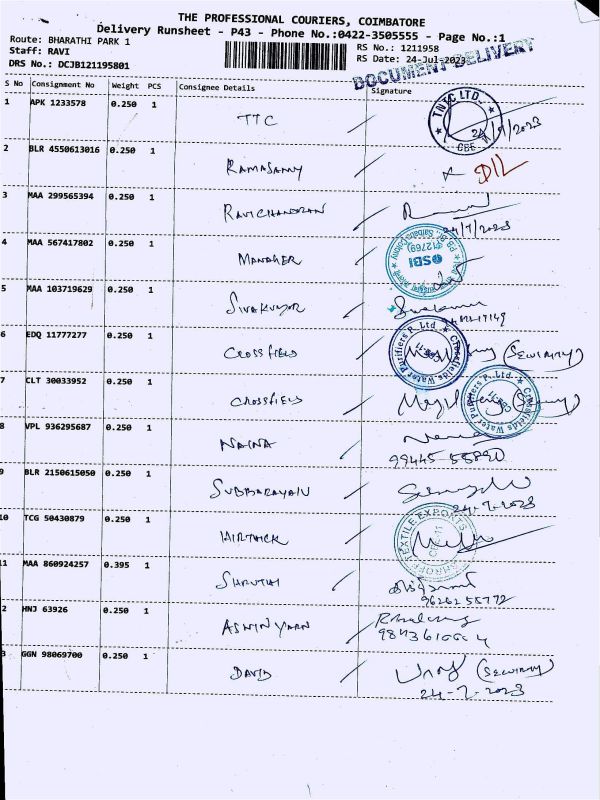 THE PROFESSIONAL COURIERS, COIMBATORE
Delivery Runsheet - P43 - Phone No.:0422-3505555 - Page No.:1
Route: BHARATHI PARK 1
RS No.: 1211958
Staff: RAVI
RS Date: 24-Jul-2023
DRS No.: DCJB121195801
DOCUMENT DELIVERY
S No Consignment No Weight PCS Consignee Details Signature
1 APK 1233578 0.250 1 TTC
TNTC LTD. CBE
2 BLR 4550613016 0.250 1 RAMASAMY
3 MAA 299565394 0.250 1 RAVICHANDRAN
24/7/2023
4 MAA 567417802 0.250 1 MANAGER
SBI
5 MAA 103719629 0.250 1 SIVAKUMAR
6 EDQ 11777277 0.250 1 CROSSFIELD (SECURITY)
Crossfields Water Purifiers P. Ltd
7 CLT 30033952 0.250 1 CROSSFIELD
Crossfields Water Purifiers P. Ltd.
8 VPL 936295687 0.250 1 NAINA
99445-55890
9 BLR 2150615050 0.250 1 SUBBARAYAN
24-7-2023
10 TCG 50430879 0.250 1
TEXTILE EXPORTS
11 MAA 860924257 0.395 1 SHRUTHI
9626255772
2 HNJ 63926 0.250 1
3 GGN 98069700 0.250 1 DAVID (SECURITY)
24-7-2023